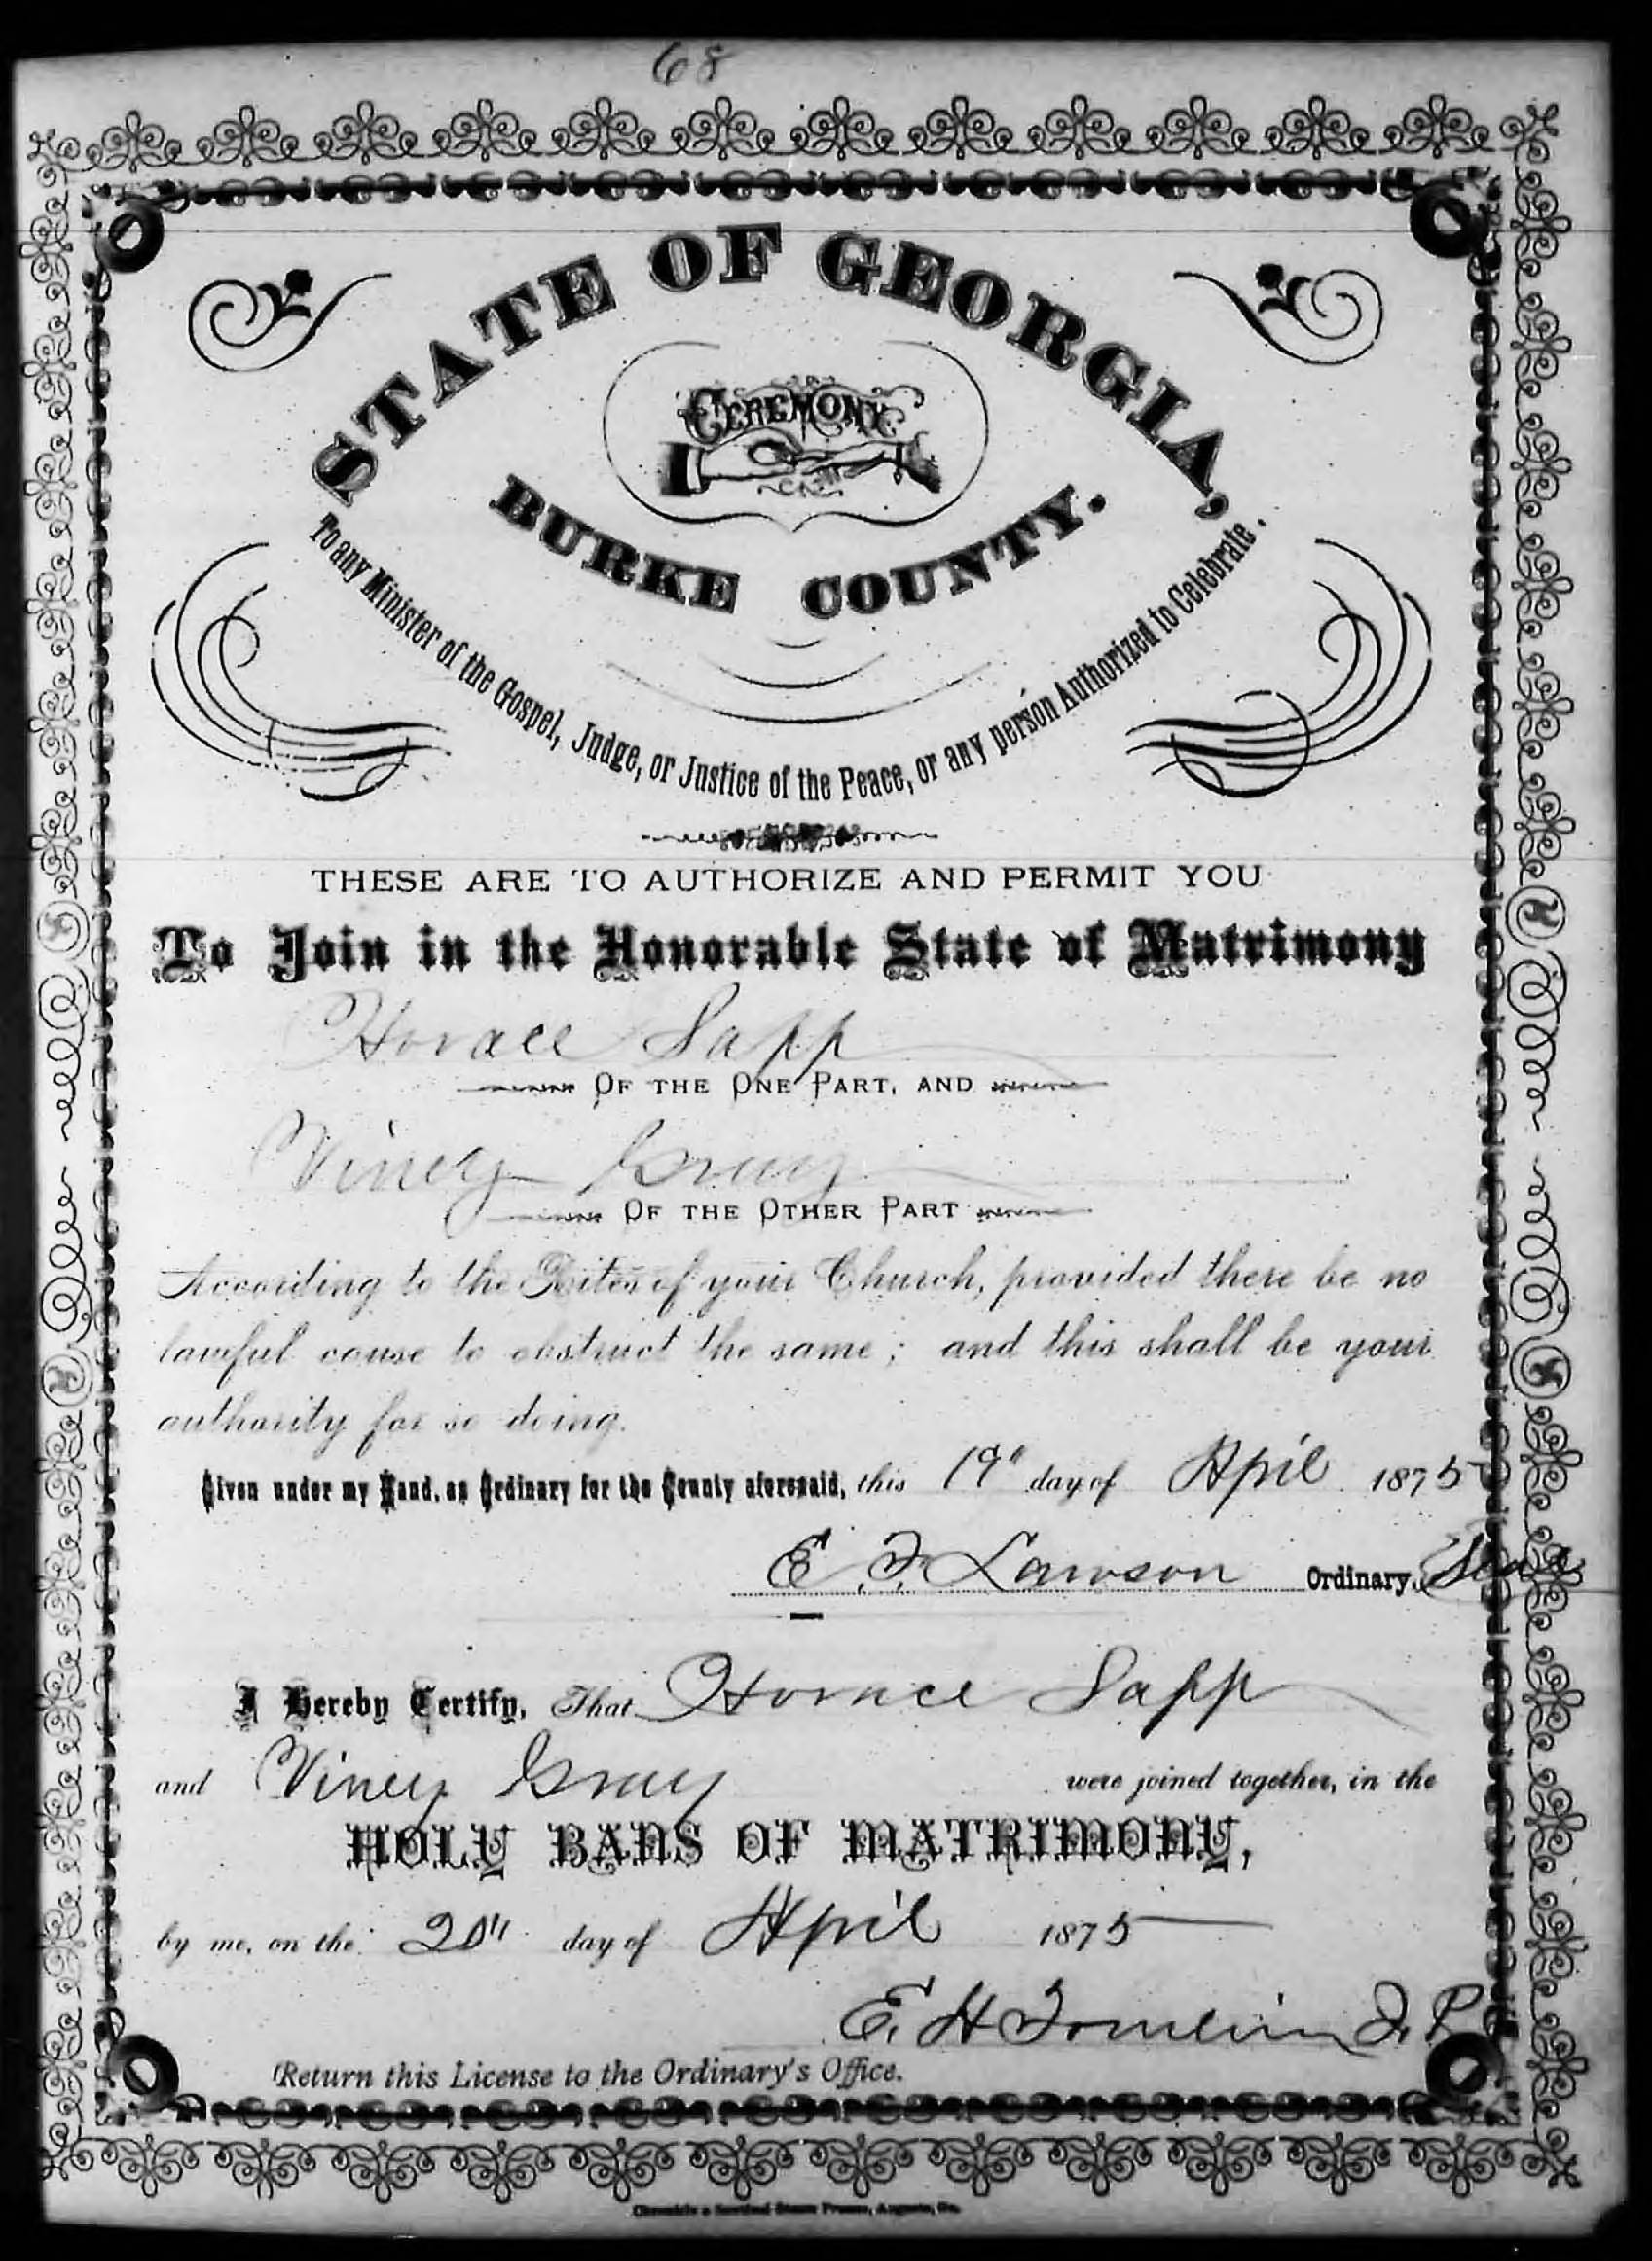 68
STATE OF GEORGIA,
CEREMONY
BURKE COUNTY.
To any Minister of the Gospel, Judge, or Justice of the Peace, or any person Authorized to Celebrate.
THESE ARE TO AUTHORIZE AND PERMIT YOU
To Join in the Honorable State of Matrimony
Horace Sapp
OF THE ONE PART, AND
Viney Gray
OF THE OTHER PART
According to the Rites of your Church, provided there be no
lawful cause to obstruct the same; and this shall be your
authority for so doing.
Given under my Hand, as Ordinary for the County aforesaid, this 19" day of April 1875
E. F. Lawson Ordinary. Seal
I Hereby Certify, That Horace Sapp
and Viney Gray were joined together, in the
HOLY BANS OF MATRIMONY,
by me, on the 20" day of April 1875
E. H Tomlin J. P.
Return this License to the Ordinary's Office.
Chronicle & Sentinel Steam Presses, Augusta, Ga.